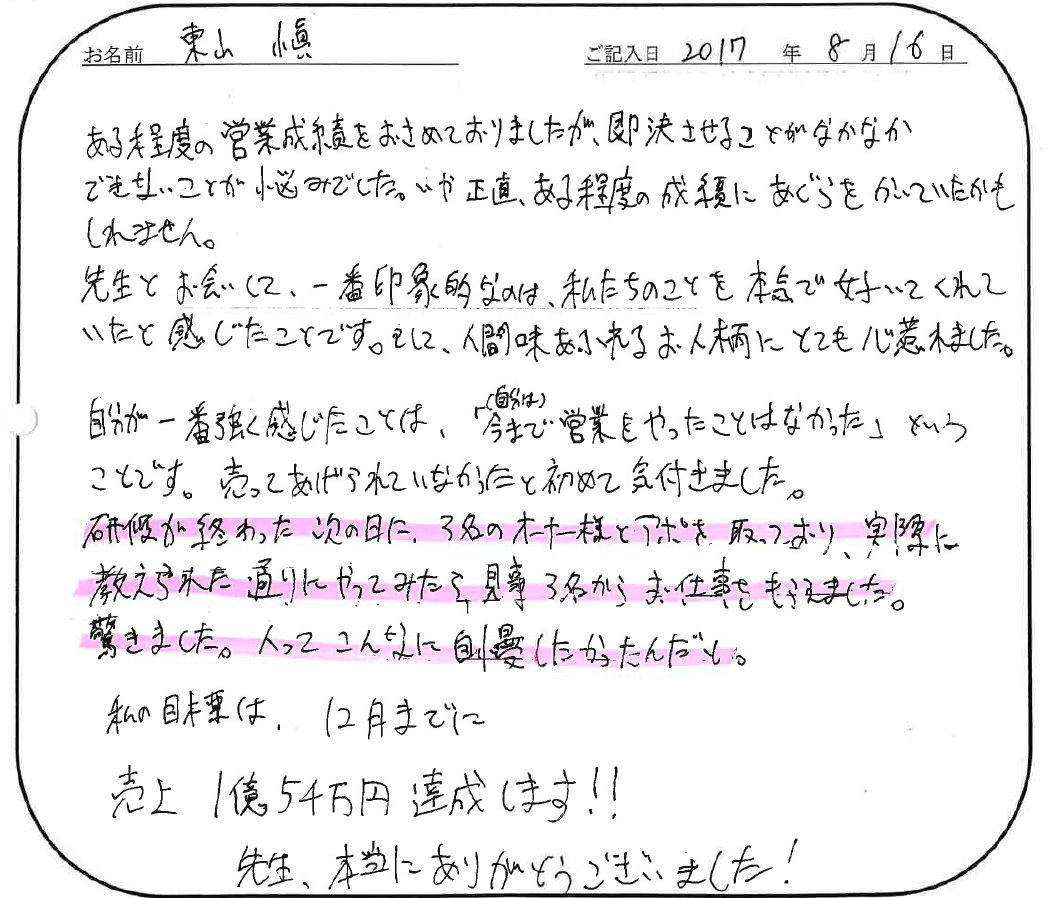 お名前 東山 慎 ご記入日 2017 年 8 月 16 日
ある程度の営業成績をおさめておりましたが、即決させることがなかなか
できないことが悩みでした。いや正直、ある程度の成績にあぐらをかいていたかも
しれません。
先生とお会いして、一番印象的なのは、私たちのことを本気で好いてくれて
いたと感じたことです。そして、人間味あふれるお人柄にとても心惹れました。
(自分は)
自分が一番強く感じたことは、「今まで営業をやったことはなかった」という
ことです。売ってあげられていなかったと初めて気付きました。
研修が終わった次の日に、3名のオーナー様とアポを取っており、実際に
教えられた通りにやってみたら、見事3名からお仕事をもらえました。
驚きました。人ってこんなに自慢したかったんだと。
私の目標は、12月までに
売上 1億54万円 達成します!!
先生、本当にありがとうございました!